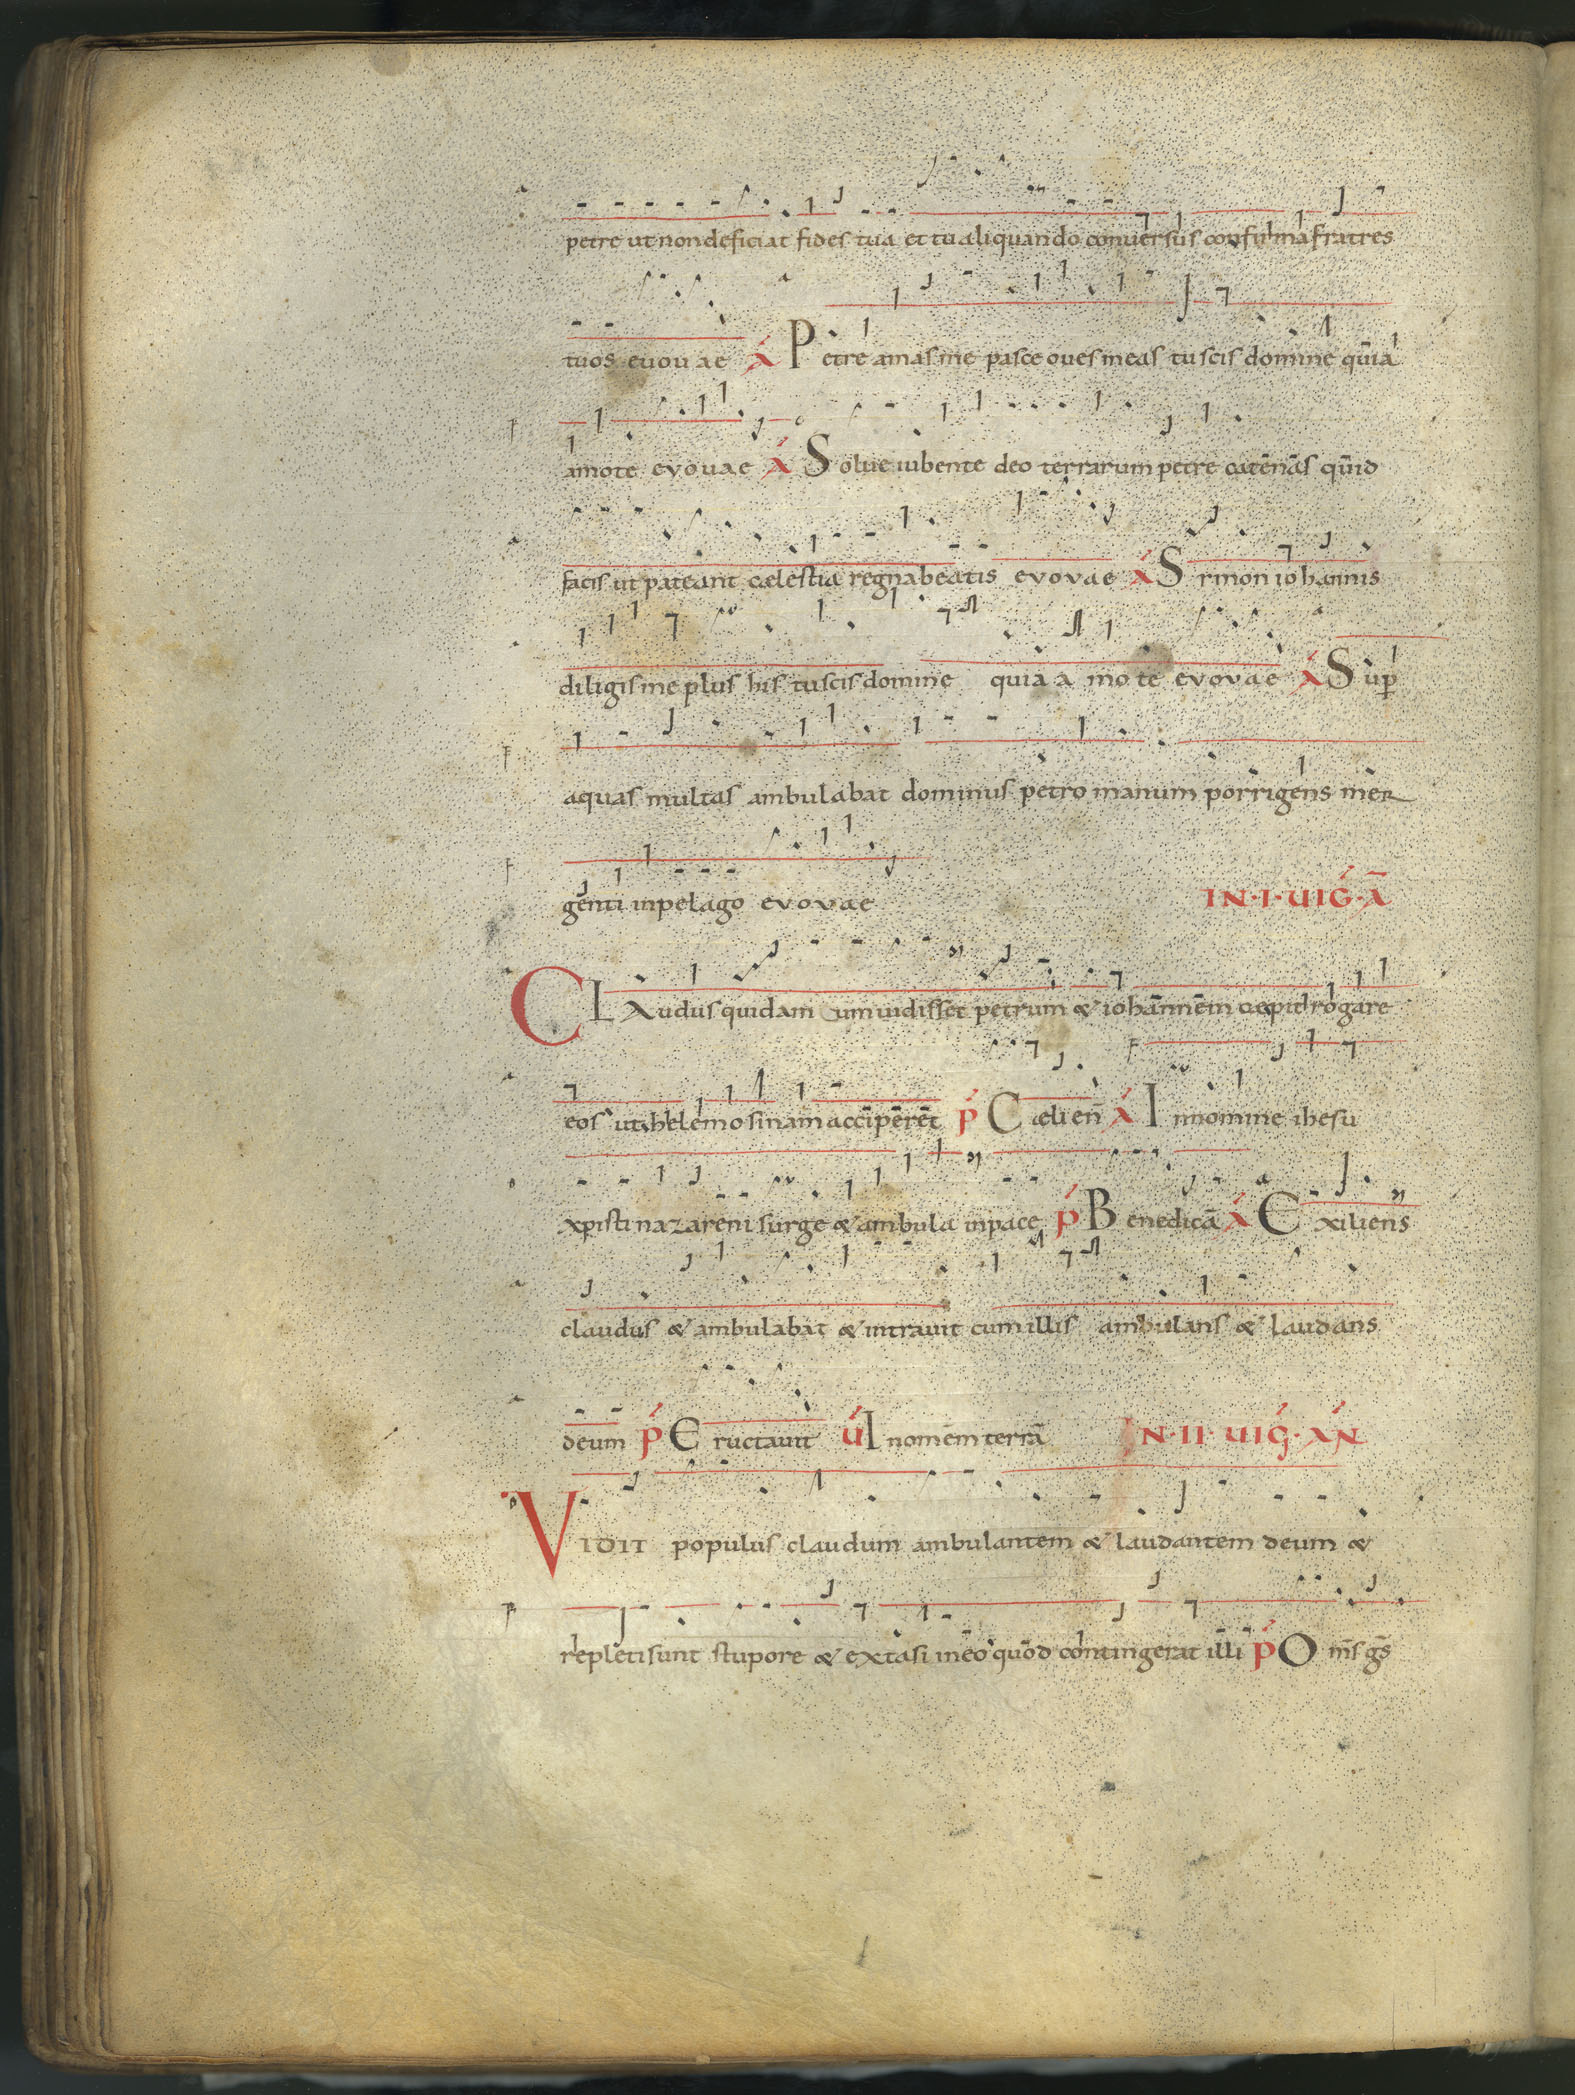 petre ut non deficiat fides tua et tu aliquando conuersus confirma fratres
tuos euouae Ā Petre amas me pasce oues meas tu scis domine quia
amo te euouae Ā Solue iubente deo terrarum petre catenas quid
facis ut pateant cælestia regna beatis euouae Ā Simon iohannis
diligis me plus his tu scis domine quia amo te euouae Ā Sup
aquas multas ambulabat dominus petro manum porrigens mer
genti in pelago euouae IN·I·UIG·Ā
CLAudus quidam cum uidisset petrum & iohannem cœpit rogare
eos ut helemosinam acciperet p Cæli en Ā In nomine ihesu
xpisti nazareni surge & ambula in pace p Benedicā Ā Exiliens
claudus & ambulabat & intrauit cum illis ambulans & laudans
deum p Eructauit U In omēm terrā IN·II·UIG·ĀN
VIDIT populus claudum ambulantem & laudantem deum &
repleti sunt stupore & extasi in eo quod contingerat illi p Om̄s gs̄